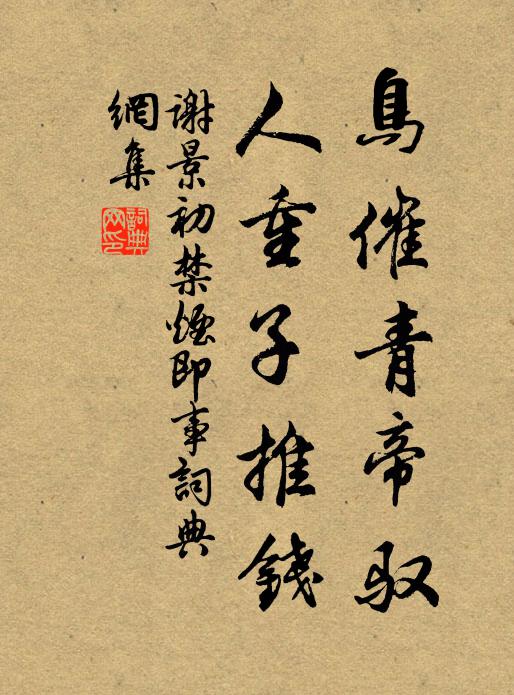 鳥催青帝馭
人重子推錢
謝景初禁煙即事詞典
網集
詞典
网印